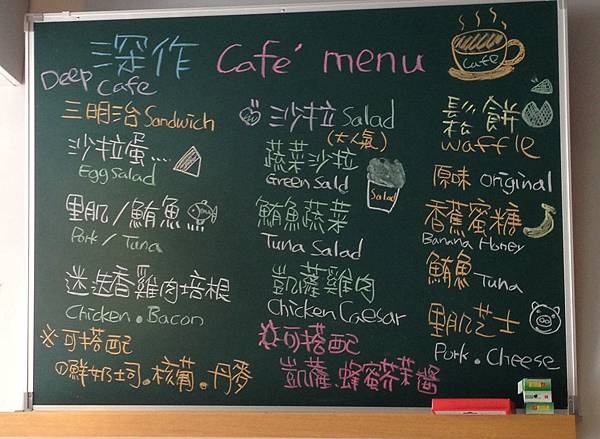 深作 Cafe' menu
Deep Cafe
cafe
三明治 Sandwich
沙拉蛋....
Egg Salad
里肌/鮪魚
Pork / Tuna
迷迭香雞肉培根
Chicken . Bacon
※可搭配
鮮奶土司.核葡.丹麥
沙拉 Salad
(大人氣)
蔬菜沙拉
Green Sald
Salad
鮪魚蔬菜
Tuna Salad
凱薩雞肉
Chicken Caesar
可搭配
凱薩.蜂蜜芥茉醬
鬆餅
waffle
原味 original
香蕉蜜糖
Banana Honey
鮪魚 Tuna
里肌芝士
Pork . Cheese